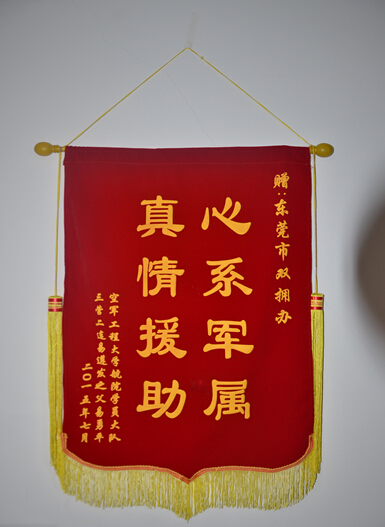 赠:东莞市双拥办
心系军属
真情援助
空军工程大学航院学员大队
三营二连易遵宏之父易勇平
二〇一五年七月